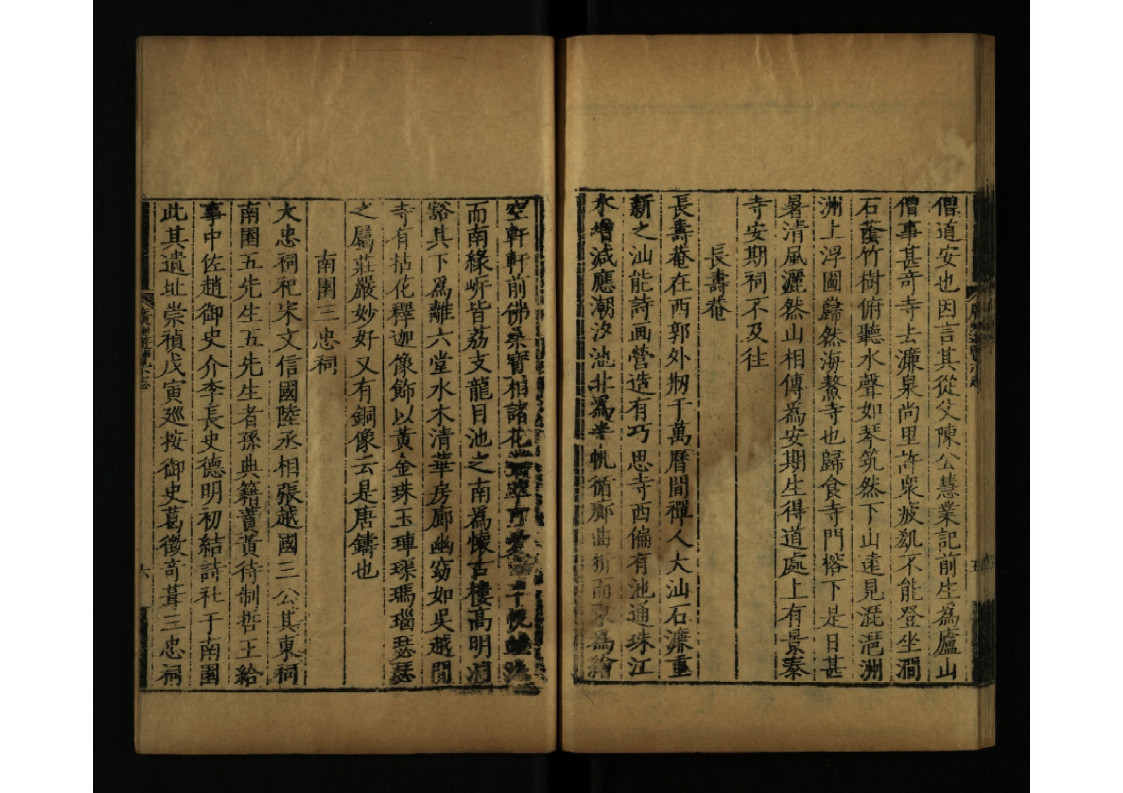 僧道安也因言其從父陳公慧業記前生為廬山
僧事甚竒寺去濂泉尚里許衆疲氣不能登坐澗
石蔭竹樹俯聽水聲如琴筑然下山遠見琵琶洲
洲上浮圖巋然海鰲寺也歸食寺門榕下是日甚
暑清風灑然山相傳為安期生得道處上有景泰
寺安期祠不及往
長壽菴
長壽菴在西郭外剏于萬曆間禪人大汕石濂重
新之汕能詩画營造有巧思寺西偏有池通珠江
水增減應潮汐池北為半帆循廊曲折而東為繪
五
空軒軒前佛桑寶相諸花
而南緣㟁皆荔支龍目池之南為懷古樓高明洞
豁其下為離六堂水木清華房廊幽窈如吳越間
寺有拈花釋迦像飾以黃金珠玉琿璖瑪瑙瑟瑟
之屬莊嚴妙好又有銅像云是唐鑄也
南園三忠祠
大忠祠祀宋文信國陸丞相張越國三公其東祠
南園五先生五先生者孫典籍蕡黃待制哲王給
事中佐趙御史介李長史德明初結詩社于南園
此其遺址崇禎戊寅廵按御史葛徵竒葺三忠祠
六